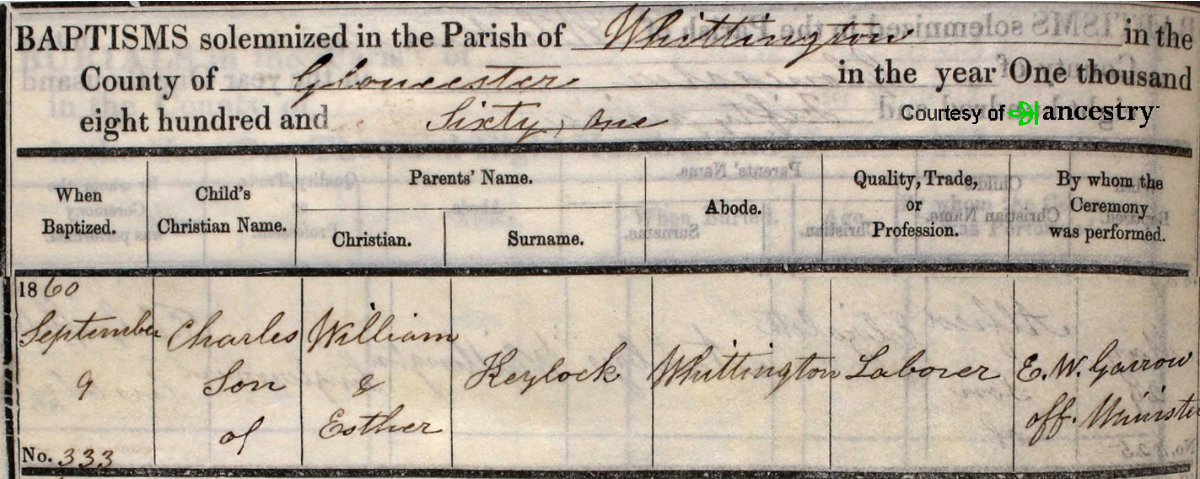 BAPTISMS solemnized in the Parish of Whittington in the
County of Gloucester in the year One thousand
eight hundred and Sixty, one
Courtesy of ancestry
When Baptized.
Child's Christian Name.
Parents' Name.
Christian.
Surname.
Abode.
Quality, Trade, or Profession.
By whom the Ceremony was performed.
1860
September 9
Charles Son of
William & Esther
Keylock
Whittington
Laborer
E. W. Garrow off. Minister
No. 333